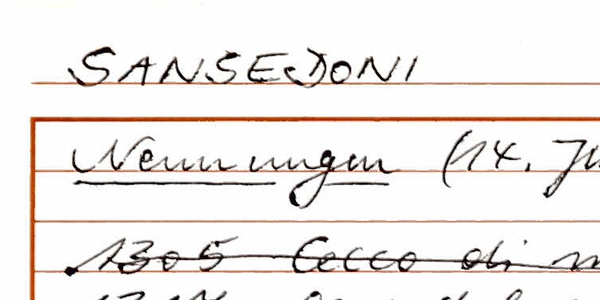 SANSEDONI
Nennungen (14. J
1305 Cecco di